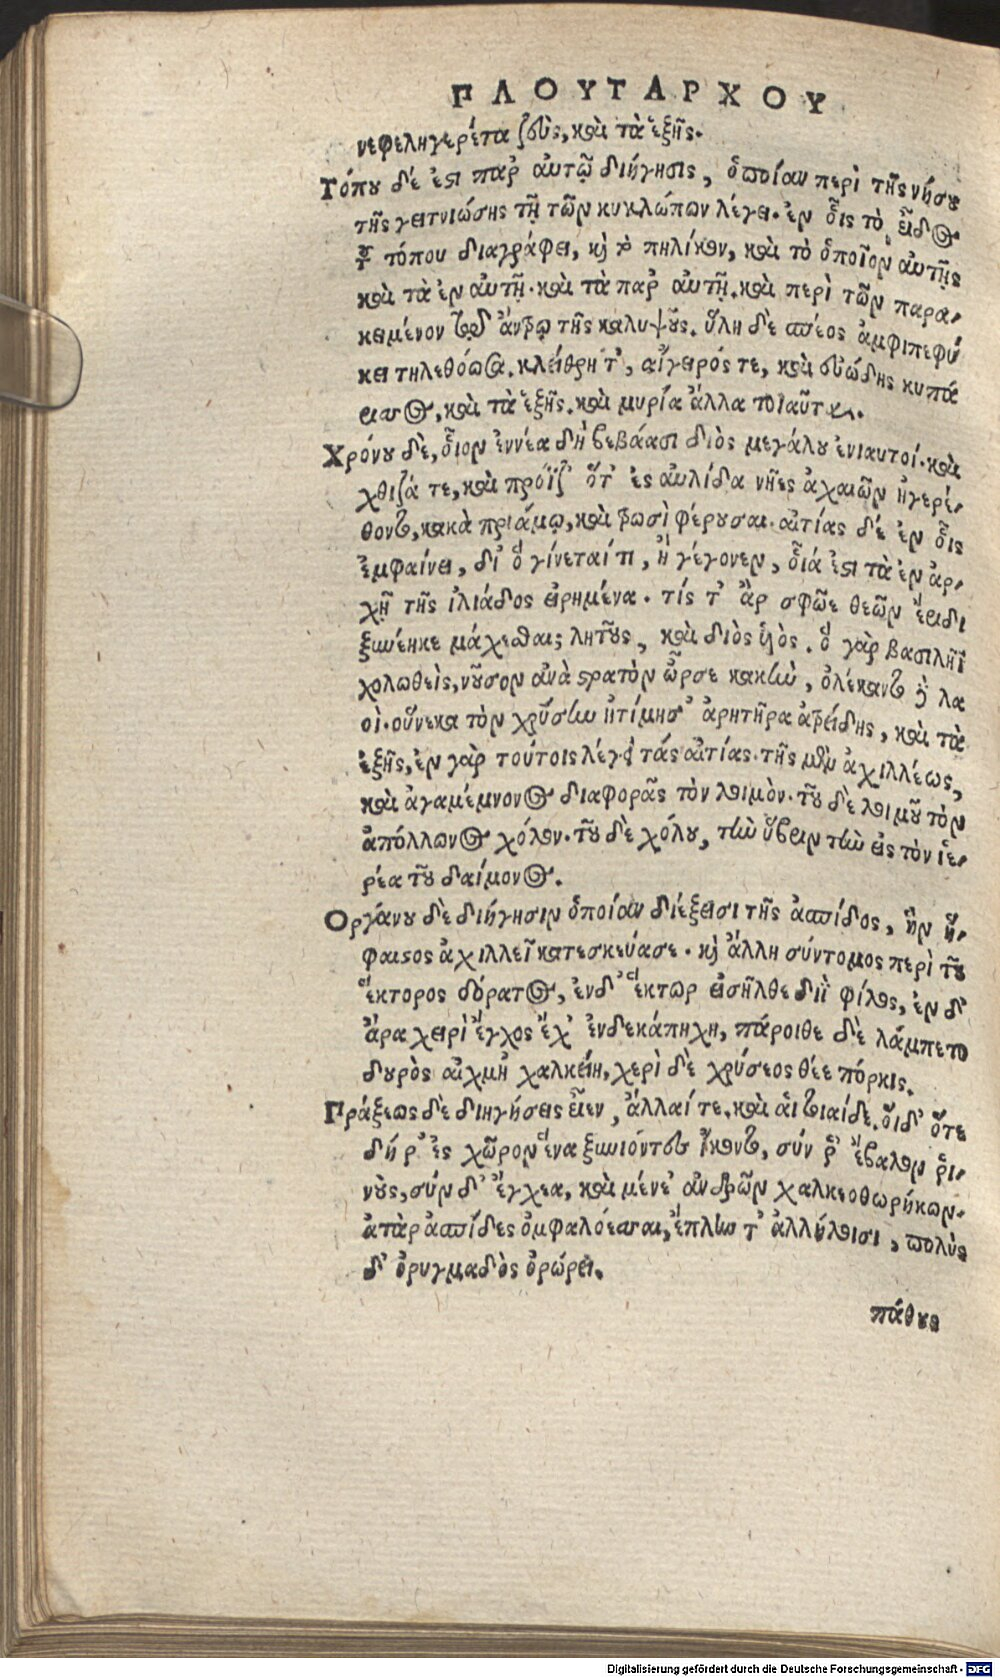 ΠΛΟΥΤΑΡΧΟΥ
νεφεληγερέτα ζεὺς, καὶ τὰ ἑξῆς.
Τόπου δέ ἐστι παρ' αὐτῷ διήγησις, ὁποίαν περὶ τῆς νήσου
τῆς γειτνιώσης τῇ τῶν κυκλώπων λέγει. ἐν οἷς τὸ εἶδος
τοῦ τόπου διαγράφει, καὶ τὸ πηλίκον, καὶ τὸ ὁποῖον αὐτῆς
καὶ τὰ ἐν αὐτῇ. καὶ τὰ παρ' αὐτῇ. καὶ περὶ τῶν παρα-
κειμένον τῷ ἄντρῳ τῆς καλυψοῦς. ὕλη δὲ σπέος ἀμφιπεφύ
κει τηλεθόωσα. κλείθρη τ', αἴγειρός τε, καὶ εὐώδης κυπά
ρισσος, καὶ τὰ ἑξῆς. καὶ μυρία ἄλλα τοιαῦτα.
Χρόνου δὲ, οἷον ἐννέα δὴ βεβάασι διὸς μεγάλου ἐνιαυτοί. καὶ
χθιζά τε, καὶ πρόϊζ' ὅτ' ἐς αὐλίδα νῆες ἀχαιῶν ἠγερέ-
θοντο, κακὰ πριάμῳ, καὶ τρωσὶ φέρουσαι. αἰτίας δέ ἐν οἷς
ἐμφαίνει, δι' ὅ γίνεταί τι, ἢ γέγονεν, οἷά ἐστι τὰ ἐν ἀρ-
χῇ τῆς ἰλιάδος εἰρημένα. τίς τ' ἂρ σφῶε θεῶν ἔριδι
ξυνέηκε μάχεσθαι; λητοῦς, καὶ διὸς ὑιὸς. ὅ γὰρ βασιλῆϊ
χολωθεὶς, νοῦσον ἀνὰ στρατὸν ὦρσε κακὴν, ὀλέκαντο δὲ λα
οὶ. οὕνεκα τὸν χρύσην ἠτίμησ' ἀρητῆρα ἀτρείδης, καὶ τὰ
ἑξῆς, ἐν γὰρ τούτοις λέγει τάς αἰτίας. τῆς μὲν ἀχιλλέως,
καὶ ἀγαμέμνονος διαφορᾶς τὸν λοιμὸν. τοῦ δὲ λοιμοῦ τὸν
ἀπόλλωνος χόλον. τοῦ δὲ χόλου, τὴν ὕβριν τὴν εἰς τὸν ἱε-
ρέα τοῦ δαίμονος.
Οργάνου δὲ διήγησιν ὁποίαν διέξεισι τῆς ἀσπίδος, ἣν ἥ-
φαιστος ἀχιλλεῖ κατεσκεύασε. καὶ ἄλλη σύντομος περὶ τοῦ
ἕκτορος δόρατος, ἔνθ' ἕκτωρ εἰσῆλθε διῒ φίλος, ἐν δ'
ἄρα χειρὶ ἔγχος ἔχ' ἑνδεκάπηχη, πάροιθε δὲ λάμπετο
δουρὸς αἰχμὴ χαλκείη, χερὶ δὲ χρύσεος θέε πόρκις.
Πράξεως δὲ διηγήσεις εἶεν, ἄλλαί τε. καὶ αἱ τοιαίδε. οἵδ' ὅτε
δή ρ' ἐς χῶρον ἕνα ξυνιόντες ἵκοντο, σύν ῥ' ἔβαλον ῥι-
νοὺς, σὺν δ' ἔγχεα, καὶ μένε' ἀνδρῶν χαλκεοθωρήκων.
ἀτὰρ ἀσπίδες ὀμφαλόεσσαι, ἔπληντ' ἀλλήλοισι, πολὺς
δ' ὀρυγμαδὸς ὀρώρει.
πάθους
Digitalisierung gefördert durch die Deutsche Forschungsgemeinschaft - DFG